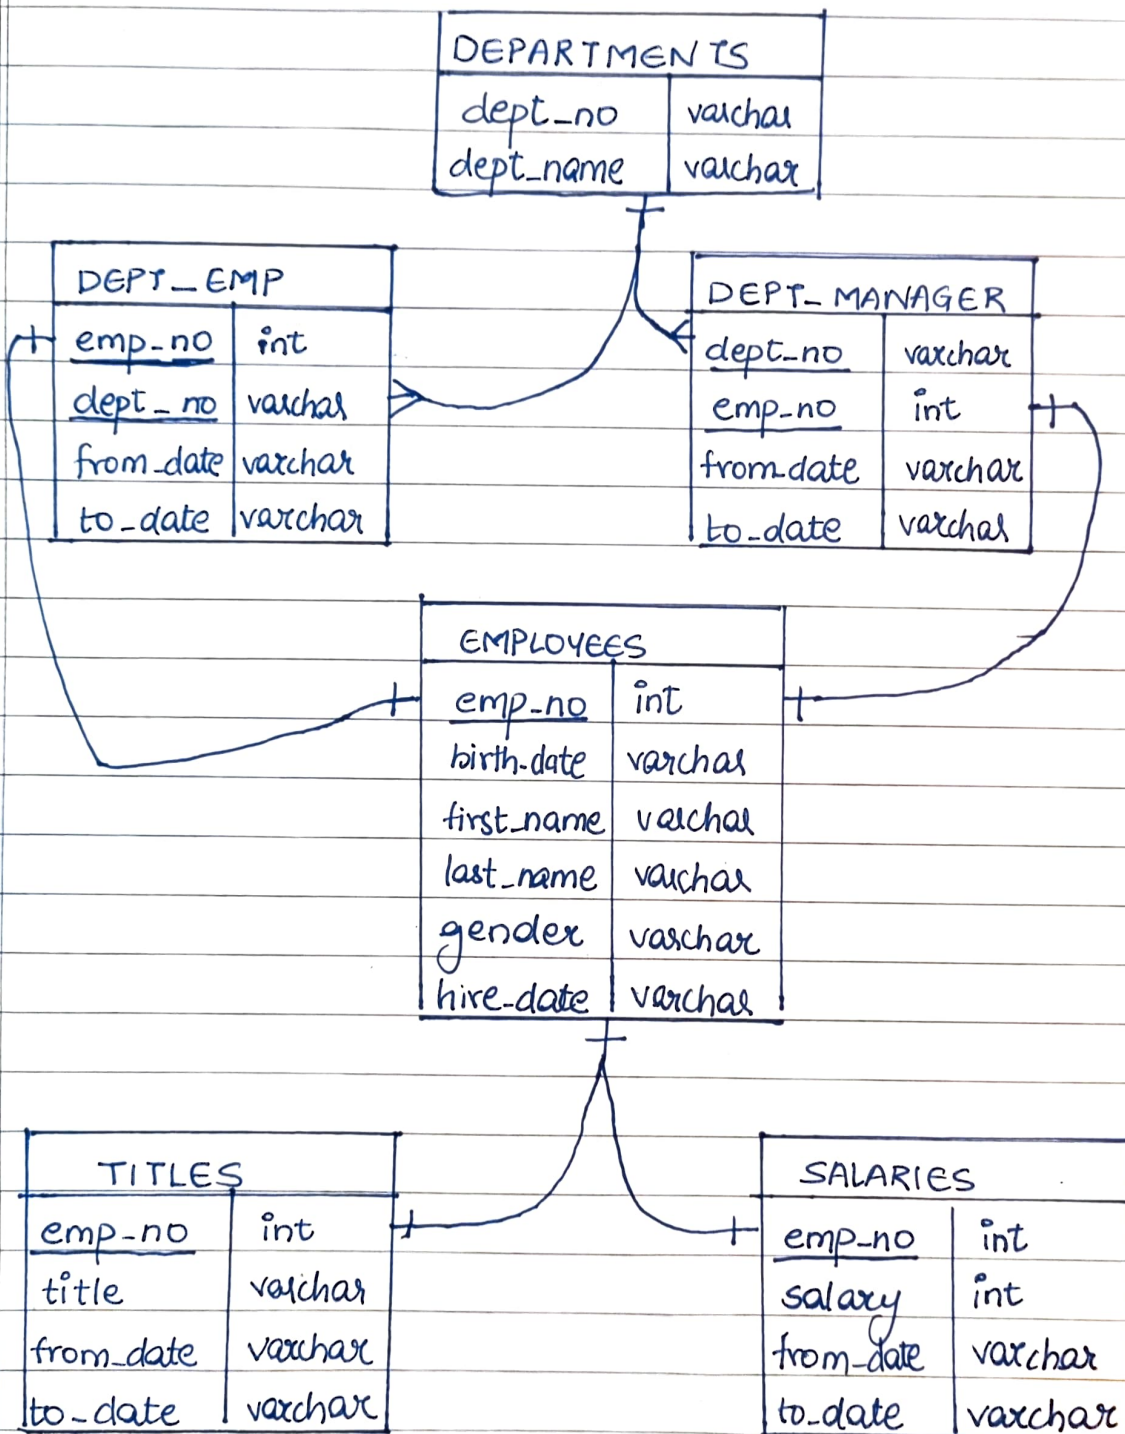 DEPARTMENTS
dept_no varchar
dept_name varchar
DEPT_EMP
emp_no int
dept_no varchar
from_date varchar
to_date varchar
DEPT_MANAGER
dept_no varchar
emp_no int
from_date varchar
to_date varchar
EMPLOYEES
emp_no int
birth_date varchar
first_name varchar
last_name varchar
gender varchar
hire_date varchar
TITLES
emp_no int
title varchar
from_date varchar
to_date varchar
SALARIES
emp_no int
salary int
from_date varchar
to_date varchar